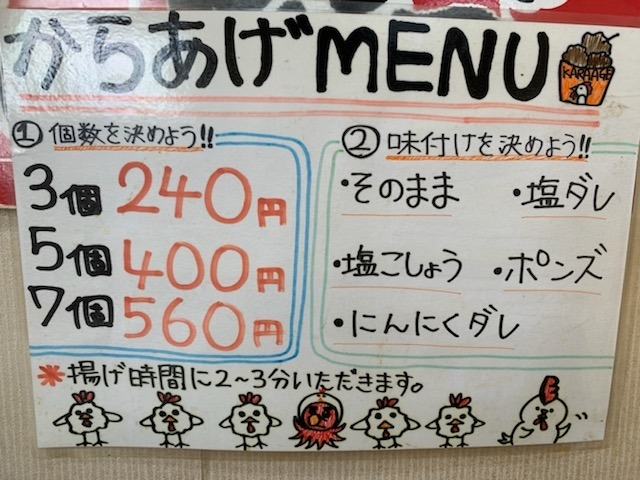 からあげMENU
KARAAGE
① 個数を決めよう!!
3個 240円
5個 400円
7個 560円
② 味付けを決めよう!!
・そのまま ・塩ダレ
・塩こしょう ・ポンズ
・にんにくダレ
※揚げ時間に2〜3分いただきます。